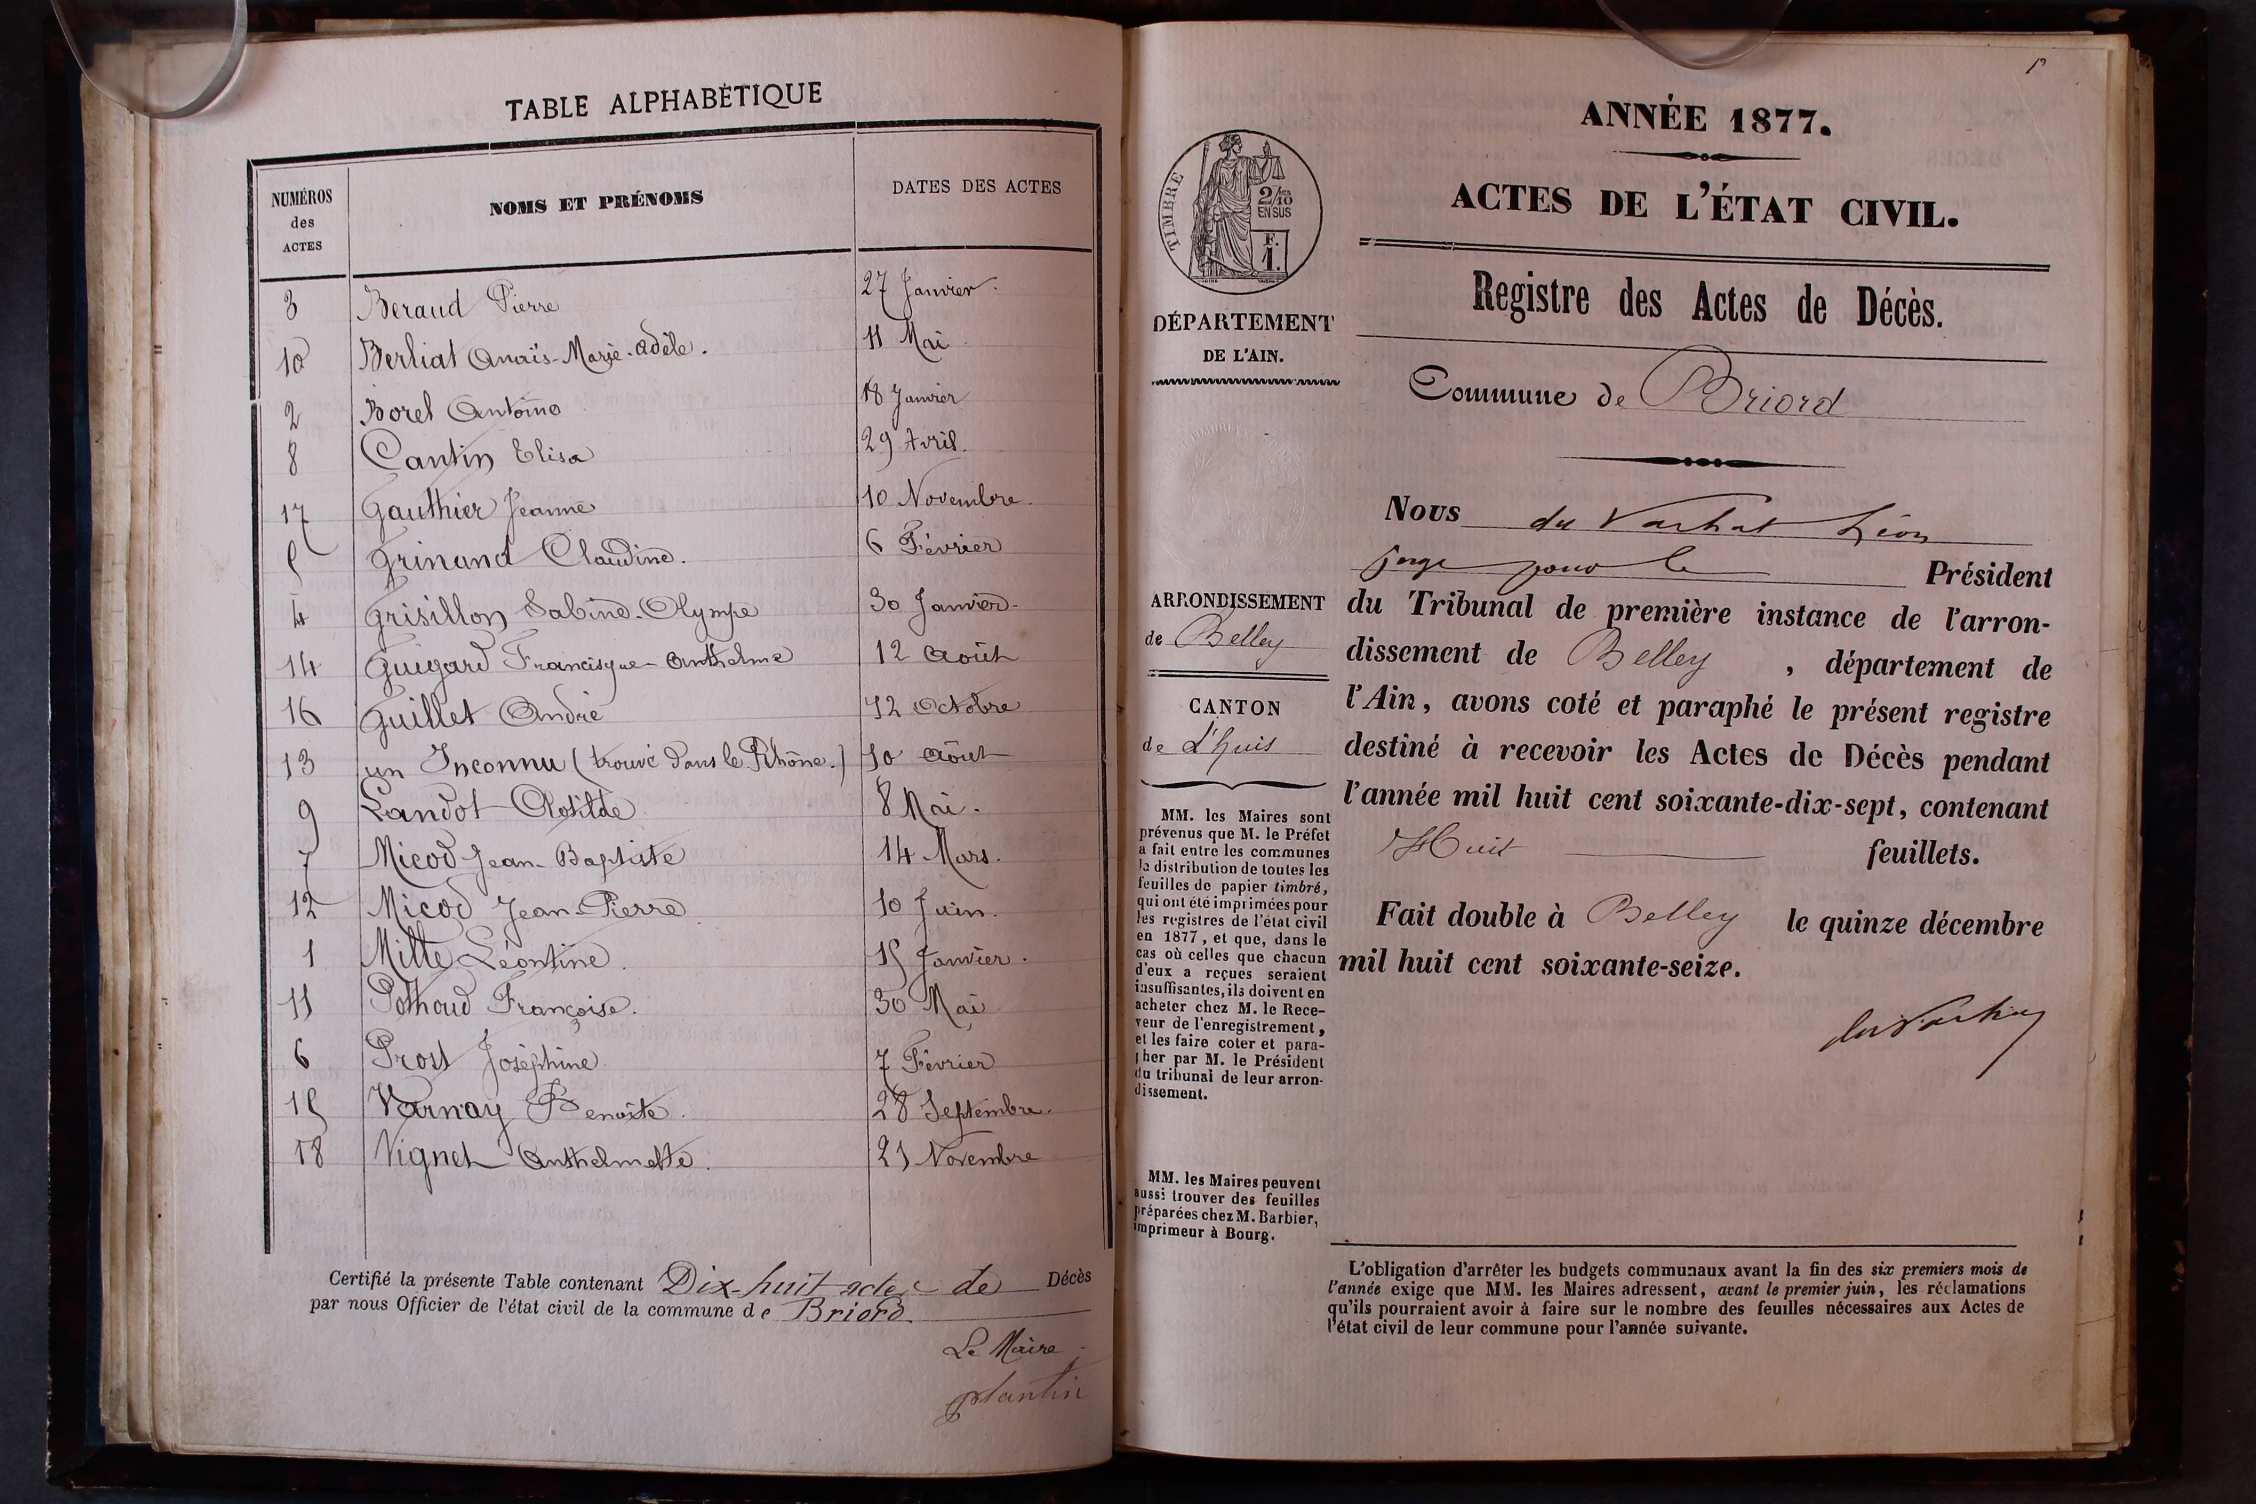 TABLE ALPHABÉTIQUE
NUMÉROS des ACTES NOMS ET PRÉNOMS DATES DES ACTES
3 Beraud Pierre 27 Janvier.
10 Berliat Anaïs-Marie-Adèle. 11 Mai
2 Borel Antoine 18 Janvier
8 Cantin Elisa 29 Avril.
17 Gauthier Jeanne 10 Novembre.
5 Grinand Claudine. 6 Février
4 Grisillon Sabine-Olympe 30 Janvier-
14 Guigard Francisque-Anthelme 12 Août
16 Guillet André 12 Octobre
13 un Inconnu (trouvé dans le Rhône.) 10 Août
9 Landot Clotilde 8 Mai.
7 Micod Jean-Baptiste 14 Mars.
12 Micod Jean-Pierre 10 Juin.
1 Mitte Léontine. 15 Janvier.
11 Pothoud Françoise. 30 Mai
6 Prost Joséphine 7 Février
15 Varnay Benoite. 28 Septembre.
18 Vignet Anthelmette. 21 Novembre
Certifié la présente Table contenant Dix-huit actes de Décès
par nous Officier de l'état civil de la commune de Briord.
Le Maire
Plantin
ANNÉE 1877.
ACTES DE L'ÉTAT CIVIL.
TIMBRE
2/10 EN SUS
F. 1.
Registre des Actes de Décès.
DÉPARTEMENT
DE L'AIN.
Commune de Briord
Nous du Vachat Léon
juge pour le Président
ARRONDISSEMENT
de Belley
CANTON
de L'huis
du Tribunal de première instance de l'arron-
dissement de Belley , département de
l'Ain, avons coté et paraphé le présent registre
destiné à recevoir les Actes de Décès pendant
l'année mil huit cent soixante-dix-sept, contenant
Huit feuillets.
Fait double à Belley le quinze décembre
mil huit cent soixante-seize.
du Vachat
MM. les Maires sont
prévenus que M. le Préfet
a fait entre les communes
la distribution de toutes les
feuilles de papier timbré,
qui ont été imprimées pour
les registres de l'état civil
en 1877, et que, dans le
cas où celles que chacun
d'eux a reçues seraient
insuffisantes, ils doivent en
acheter chez M. le Rece-
veur de l'enregistrement,
et les faire coter et para-
pher par M. le Président
du tribunal de leur arron-
dissement.
MM. les Maires peuvent
aussi trouver des feuilles
préparées chez M. Barbier,
imprimeur à Bourg.
L'obligation d'arrêter les budgets communaux avant la fin des six premiers mois de
l'année exige que MM. les Maires adressent, avant le premier juin, les réclamations
qu'ils pourraient avoir à faire sur le nombre des feuilles nécessaires aux Actes de
l'état civil de leur commune pour l'année suivante.